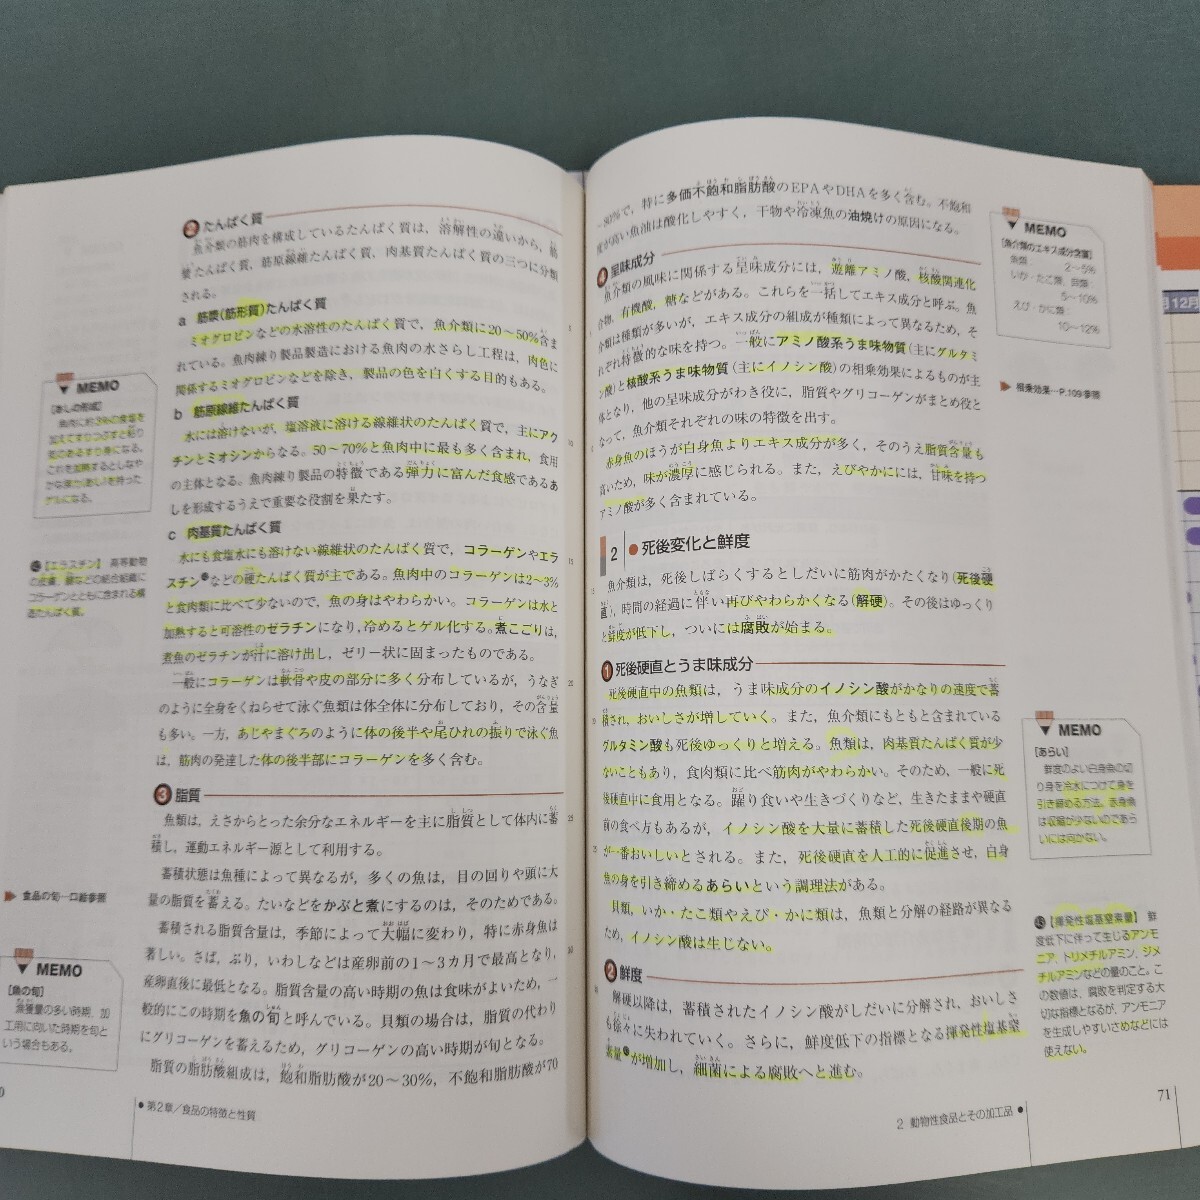 ❷ たんぱく質
魚介類の筋肉を構成しているたんぱく質は，溶解性の違いから，筋
漿たんぱく質，筋原線維たんぱく質，肉基質たんぱく質の三つに分類
される。
a 筋漿(筋形質)たんぱく質
ミオグロビンなどの水溶性のたんぱく質で，魚介類に20〜50%含ま
れている。魚肉練り製品製造における魚肉の水さらし工程は，肉色に
関係するミオグロビンなどを除き，製品の色を白くする目的もある。
b 筋原線維たんぱく質
水には溶けないが，塩溶液に溶ける線維状のたんぱく質で，主にアク
チンとミオシンからなる。50〜70%と魚肉中に最も多く含まれ，食用
の主体となる。魚肉練り製品の特徴である弾力に富んだ食感であるあ
しを形成するうえで重要な役割を果たす。
c 肉基質たんぱく質
水にも食塩水にも溶けない線維状のたんぱく質で，コラーゲンやエラ
スチンなどの硬たんぱく質が主である。魚肉中のコラーゲンは2〜3%
と食肉類に比べて少ないので，魚の身はやわらかい。コラーゲンは水と
加熱すると可溶性のゼラチンになり，冷めるとゲル化する。煮こごりは，
煮魚のゼラチンが汁に溶け出し，ゼリー状に固まったものである。
一般にコラーゲンは軟骨や皮の部分に多く分布しているが，うなぎ
のように全身をくねらせて泳ぐ魚類は体全体に分布しており，その含量
も多い。一方，あじやまぐろのように体の後半や尾ひれの振りで泳ぐ魚
は，筋肉の発達した体の後半部にコラーゲンを多く含む。
❸ 脂質
魚類は，えさからとった余分なエネルギーを主に脂質として体内に蓄
積し，運動エネルギー源として利用する。
蓄積状態は魚種によって異なるが，多くの魚は，目の回りや頭に大
量の脂質を蓄える。たいなどをかぶと煮にするのは，そのためである。
蓄積される脂質含量は，季節によって大幅に変わり，特に赤身魚は
著しい。さば，ぶり，いわしなどは産卵前の1〜3カ月で最高となり，
産卵直後に最低となる。脂質含量の高い時期の魚は食味がよいため，一
般的にこの時期を魚の旬と呼んでいる。貝類の場合は，脂質の代わり
にグリコーゲンを蓄えるため，グリコーゲンの高い時期が旬となる。
脂質の脂肪酸組成は，飽和脂肪酸が20〜30%，不飽和脂肪酸が70
MEMO
[あしの形成]
魚肉に約3%の食塩を
加えてすりつぶすと粘り
気のあるすり身になる。
これを加熱するとしなや
かな弾力(あし)を持った
ゲルになる。
【エラスチン】 高等動物
の皮膚，腱などの結合組織に
コラーゲンとともに含まれる構
造たんぱく質。
▶ 食品の旬…口絵参照
MEMO
[魚の旬]
漁獲量の多い時期、加
工用に向いた時期を旬と
いう場合もある。
● 第2章／食品の特徴と性質
〜80%で，特に多価不飽和脂肪酸のEPAやDHAを多く含む。不飽和
度が高い魚油は酸化しやすく，干物や冷凍魚の油焼けの原因になる。
❹ 呈味成分
魚介類の風味に関係する呈味成分には，遊離アミノ酸，核酸関連化
合物，有機酸，糖などがある。これらを一括してエキス成分と呼ぶ。魚
介類は種類が多いが，エキス成分の組成が種類によって異なるため，そ
れぞれ特徴的な味を持つ。一般にアミノ酸系うま味物質(主にグルタミ
ン酸)と核酸系うま味物質(主にイノシン酸)の相乗効果によるものが主
体となり，他の呈味成分がわき役に，脂質やグリコーゲンがまとめ役と
なって，魚介類それぞれの味の特徴を出す。
赤身魚のほうが白身魚よりエキス成分が多く，そのうえ脂質含量も
高いため，味が濃厚に感じられる。また，えびやかにには，甘味を持つ
アミノ酸が多く含まれている。
2 ● 死後変化と鮮度
魚介類は，死後しばらくするとしだいに筋肉がかたくなり(死後硬
直)，時間の経過に伴い再びやわらかくなる(解硬)。その後はゆっくり
と鮮度が低下し，ついには腐敗が始まる。
❶ 死後硬直とうま味成分
死後硬直中の魚類は，うま味成分のイノシン酸がかなりの速度で蓄
積され，おいしさが増していく。また，魚介類にもともと含まれている
グルタミン酸も死後ゆっくりと増える。魚類は，肉基質たんぱく質が少
ないこともあり，食肉類に比べ筋肉がやわらかい。そのため，一般に死
後硬直中に食用となる。躍り食いや生きづくりなど，生きたままや硬直
前の食べ方もあるが，イノシン酸を大量に蓄積した死後硬直後期の魚
が一番おいしいとされる。また，死後硬直を人工的に促進させ，白身
魚の身を引き締めるあらいという調理法がある。
貝類，いか・たこ類やえび・かに類は，魚類と分解の経路が異なる
ため，イノシン酸は生じない。
❷ 鮮度
解硬以降は，蓄積されたイノシン酸がしだいに分解され，おいしさ
も徐々に失われていく。さらに，鮮度低下の指標となる揮発性塩基窒
素量が増加し，細菌による腐敗へと進む。
MEMO
[魚介類のエキス成分含量]
魚類：
2〜5%
いか・たこ類、貝類：
5〜10%
えび・かに類：
10〜12%
▶ 相乗効果…P.109参照
MEMO
[あらい]
鮮度のよい白身魚の切
り身を冷水につけて身を
引き締める方法。赤身魚
は収縮が少ないのであら
いには向かない。
【揮発性塩基窒素量】 鮮
度低下に伴って生じるアンモ
ニア、トリメチルアミン、ジメ
チルアミンなどの量のこと。こ
の数値は、腐敗を判定する大
切な指標となるが、アンモニア
を生成しやすいさめなどには
使えない。
2 動物性食品とその加工品 ●
71
月12月